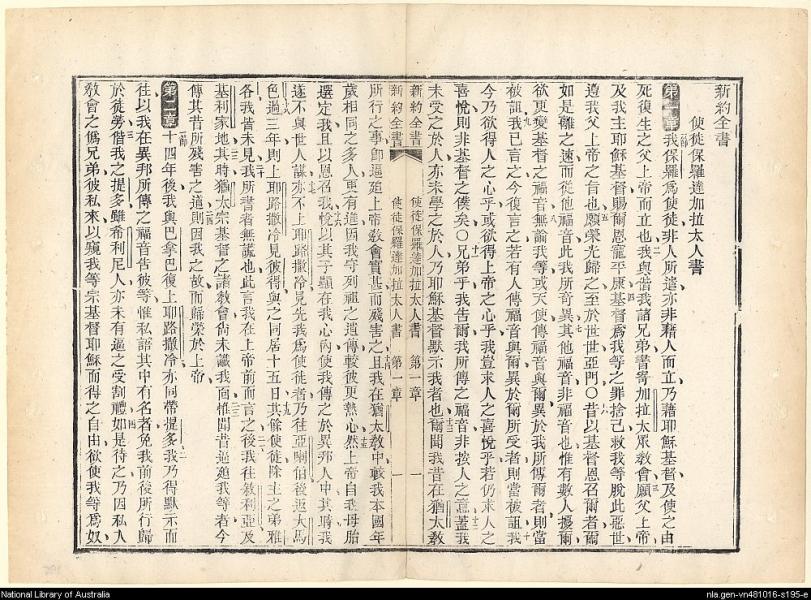 新約全書
使徒保羅達加拉太人書
第一章 我保羅爲使徒非人所遣亦非藉人而立乃藉耶穌基督及使之由
死復生之父上帝而立也我與偕我諸兄弟書寄加拉太衆敎會願父上帝
及我主耶穌基督賜爾恩寵平康基督爲我等之罪捨己救我等脫此惡世
遵我父上帝之旨也願榮光歸之至於世世亞門〇昔以基督恩召爾者爾
如是離之速而從他福音此我所奇異其他福音非福音也惟有數人擾爾
欲更變基督之福音無論我等或天使傳福音與爾異於我所傳爾者則當
被詛我已言之今復言之若有人傳福音與爾異於爾所受者則當被詛我
今乃欲得人之心乎或欲得上帝之心乎我豈求人之喜悅乎若仍求人之
喜悅則非基督之僕矣〇兄弟乎我告爾我所傳之福音非按人之意蓋我
未受之於人亦未學之於人乃耶穌基督默示我者也爾聞我昔在猶太敎
新約全書 使徒保羅達加拉太人書 第一章 一
新約全書 使徒保羅達加拉太人書 第一章 一
所行之事卽逼廹上帝敎會實甚而殘害之且我在猶太敎中較我本國年
歲相同之多人更有進因我守列祖之遺傳較彼更熱心然上帝自我母胎
選定我且以恩召我悅以其子顯在我心內使我傳之於異邦人中其時我
遂不與世人謀亦不上耶路撒冷見先我爲使徒者乃往亞喇伯後返大馬
色過三年則上耶路撒冷見彼得與之同居十五日其餘使徒除主之弟雅
各我皆未見我所書者無謊也此言我在上帝前而言之後我往敘利亞及
基利家地其時猶太宗基督之諸敎會尙未識我面惟聞昔逼廹我等者今
傳其昔所殘害之道則因我之故而歸榮於上帝
第二章 十四年後我與巴拿巴復上耶路撒冷亦同帶提多我乃得默示而
往以我在異邦所傳之福音告彼等惟私語其中有名者免我前後所行歸
於徒勞偕我之提多雖希利尼人亦未有逼之受割禮如是待之乃因私入
敎會之僞兄弟彼私來以窺我等宗基督耶穌而得之自由欲使我等爲奴
National Library of Australia
nla.gen-vn481016-s195-e